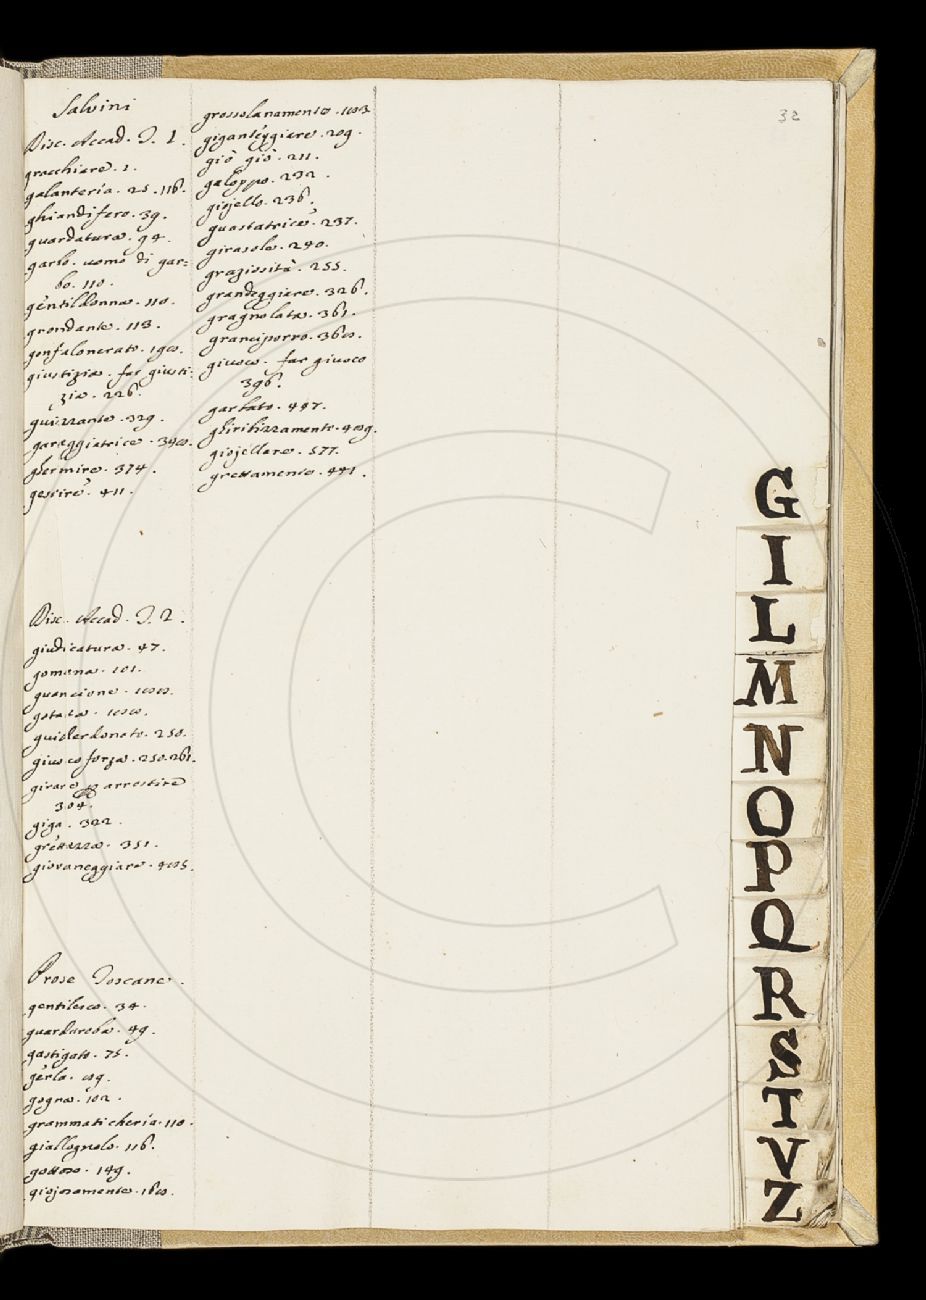 Salvini
Disc. Accad. T. 1.
gracchiare. 1.
galanteria. 25. 116.
ghiandifero. 39.
guardatura. 94.
garbo. uomo di gar=
bo. 110.
gentildonna. 110.
grondante. 113.
gonfalonerato.
giustizia. far giusti=
zia. 226.
guizzante. 329.
gareggiatrice.
ghermire. 374.
gestire. 411.
Disc. Accad. T. 2.
giudicatura. 47.
gomena. 101.
guancione.
gotata.
guiderdonato. 250.
giuoco forza. 250. 261.
girare arrostire
304.
giga. 322.
grettezza. 351.
giovaneggiare.
Prose Toscane.
gentilesco. 34.
guardaroba. 49.
gastigato. 75.
gerla.
gogna. 102.
grammaticheria. 110.
giallognolo. 116.
gottoso. 149.
giojosamente.
grossolanamente.
giganteggiare. 209.
giò giò. 211.
galoppo. 232.
giojello. 236.
guastatrice. 237.
girasole. 240.
graziosità. 255.
grandeggiare. 326.
gragnolata. 361.
granciporro.
giuoco. far giuoco
396.
garbato. 447.
ghiribizzamento.
giojellare. 577.
grettamente. 441.
32
G
I
L
M
N
O
P
Q
R
S
T
V
Z